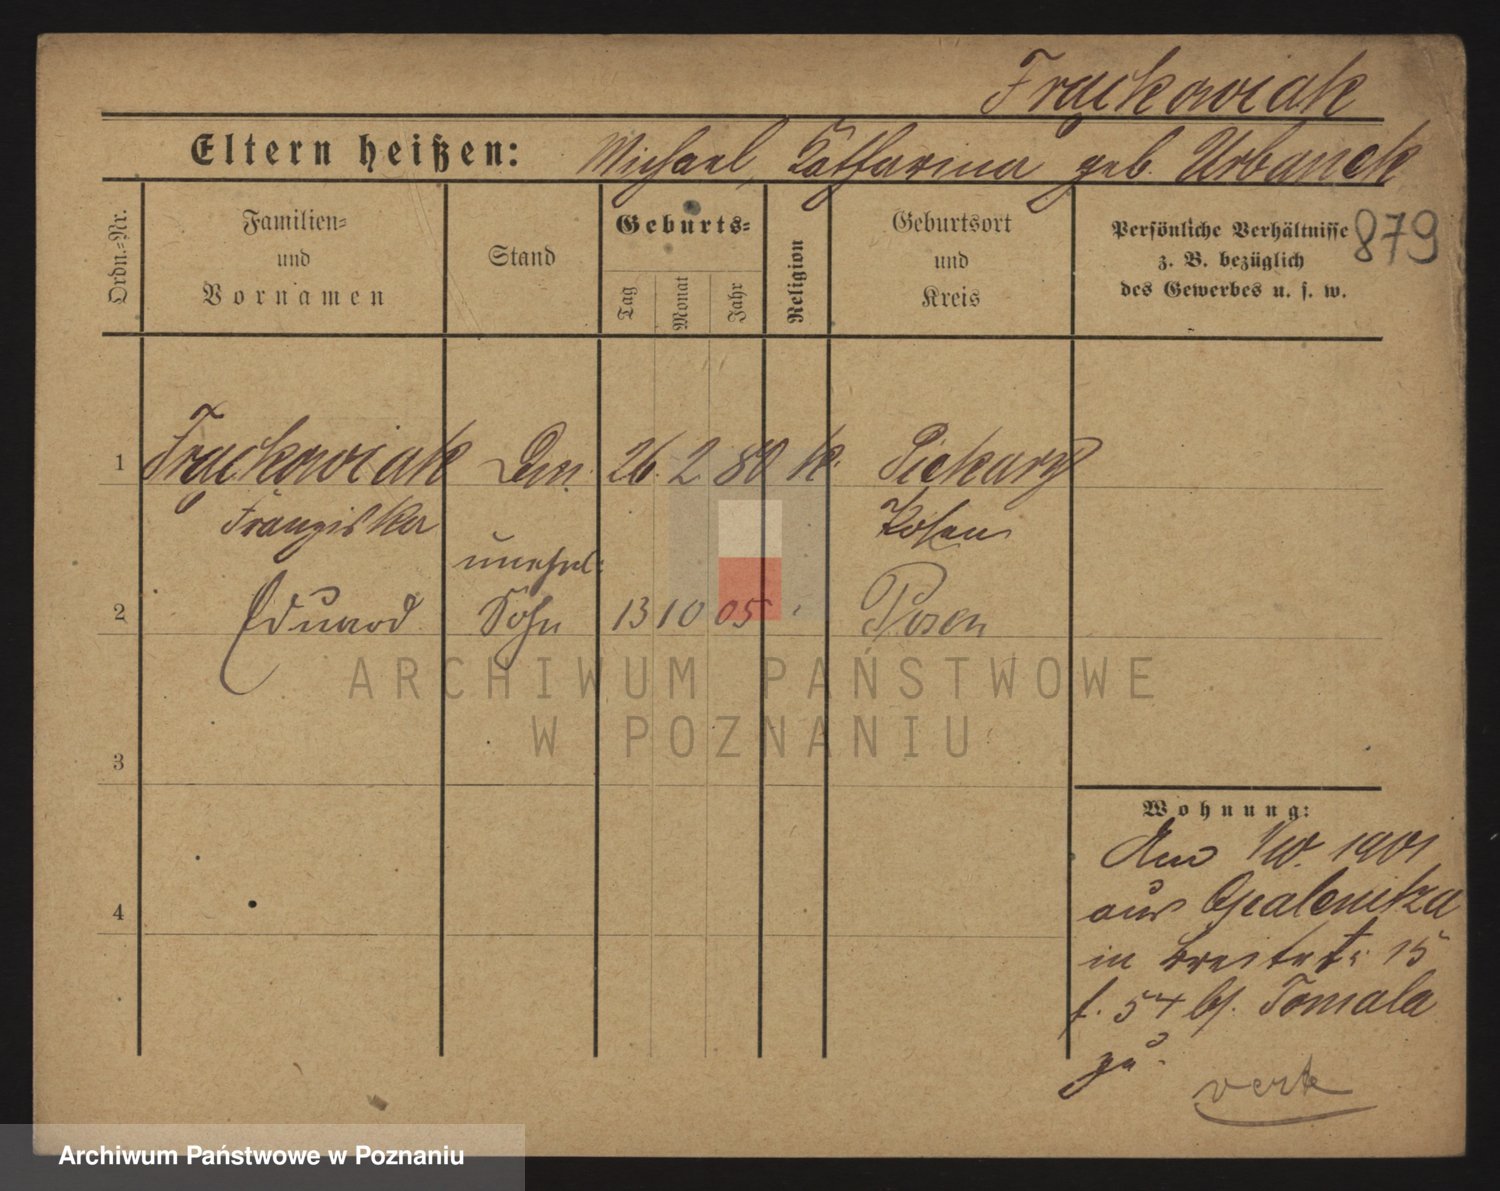 Frąckowiak
Eltern heißen: Michael, Katharina geb. Urbanek
Ordn.=Nr.
Familien=
und
Vornamen
Stand
Geburts=
Tag
Monat
Jahr
Religion
Geburtsort
und
Kreis
Persönliche Verhältnisse
z. B. bezüglich
des Gewerbes u. s. w.
879
1 Frąckowiak 26. 2. 80 k. Piekary
Franziska Posen
unehel:
2 Eduard Sohn 13 10 05 Posen
ARCHIWUM PAŃSTWOWE
W POZNANIU
3
4
Wohnung:
Am 1/10. 1901
aus Opalenitza
in Breitestr. 15
f. 54 bei Tomala
zu.
Archiwum Państwowe w Poznaniu